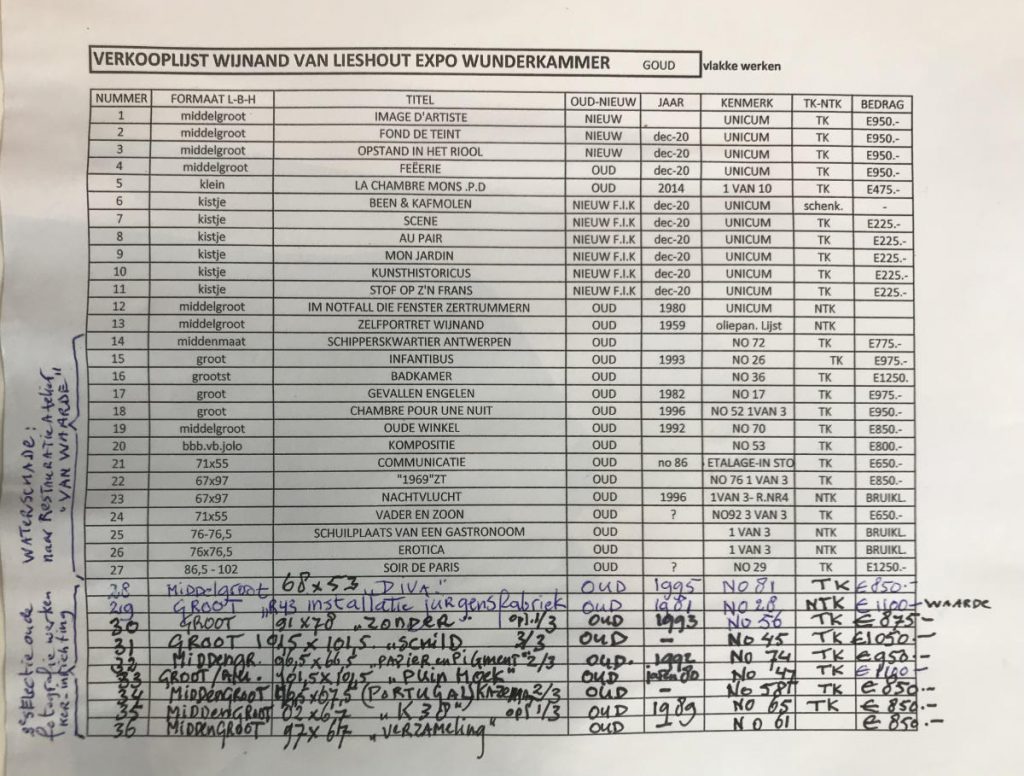 VERKOOPLIJST WIJNAND VAN LIESHOUT EXPO WUNDERKAMMER GOUD vlakke werken
NUMMER FORMAAT L-B-H TITEL OUD-NIEUW JAAR KENMERK TK-NTK BEDRAG
1 middelgroot IMAGE D'ARTISTE NIEUW UNICUM TK E950.-
2 middelgroot FOND DE TEINT NIEUW dec-20 UNICUM TK E950.-
3 middelgroot OPSTAND IN HET RIOOL NIEUW dec-20 UNICUM TK E950.-
4 middelgroot FEËERIE OUD dec-20 UNICUM TK E950.-
5 klein LA CHAMBRE MONS .P.D OUD 2014 1 VAN 10 TK E475.-
6 kistje BEEN & KAFMOLEN NIEUW F.I.K dec-20 UNICUM schenk. -
7 kistje SCENE NIEUW F.I.K dec-20 UNICUM TK E225.-
8 kistje AU PAIR NIEUW F.I.K dec-20 UNICUM TK E225.-
9 kistje MON JARDIN NIEUW F.I.K dec-20 UNICUM TK E225.-
10 kistje KUNSTHISTORICUS NIEUW F.I.K dec-20 UNICUM TK E225.-
11 kistje STOF OP Z'N FRANS NIEUW F.I.K dec-20 UNICUM TK E225.-
12 middelgroot IM NOTFALL DIE FENSTER ZERTRUMMERN OUD 1980 UNICUM NTK
13 middelgroot ZELFPORTRET WIJNAND OUD 1959 oliepan. Lijst NTK
14 middenmaat SCHIPPERSKWARTIER ANTWERPEN OUD NO 72 TK E775.-
15 groot INFANTIBUS OUD 1993 NO 26 TK E975.-
16 grootst BADKAMER OUD NO 36 TK E1250.
17 groot GEVALLEN ENGELEN OUD 1982 NO 17 TK E975.-
18 groot CHAMBRE POUR UNE NUIT OUD 1996 NO 52 1VAN 3 TK E950.-
19 middelgroot OUDE WINKEL OUD 1992 NO 70 TK E850.-
20 bbb.vb.jolo KOMPOSITIE OUD NO 53 TK E800.-
21 71x55 COMMUNICATIE OUD no 86 ETALAGE-IN STO TK E650.-
22 67x97 "1969"ZT OUD NO 76 1 VAN 3 TK E850.-
23 67x97 NACHTVLUCHT OUD 1996 1VAN 3- R.NR4 NTK BRUIKL.
24 71x55 VADER EN ZOON OUD ? NO92 3 VAN 3 TK E650.-
25 76-76,5 SCHUILPLAATS VAN EEN GASTRONOOM OUD 1 VAN 3 NTK BRUIKL.
26 76x76,5 EROTICA OUD 1 VAN 3 NTK BRUIKL.
27 86,5 - 102 SOIR DE PARIS OUD ? NO 29 TK E1250.-
28 MIDDELGROOT 68x53 „DIVA." OUD 1995 NO 81 TK €850.-
29 GROOT installatie jürgensfabriek OUD 1981 NO 28 NTK €1100- WAARDE
30 GROOT 91x78 „ZONDER" opl.1/3 OUD 1993 NO 56 TK €875-
31 GROOT 101,5x101,5 „SCHILD 3/3 OUD - NO 45 TK €1050.-
32 MIDDENGR. 96,5x66,5 „PAPIER en PIGMENT" 2/3 OUD. 1992 NO 74 TK €950.-
33 GROOT 101,5x101,5 „PUIN HOEK" OUD NO 47 TK €1100-
34 MIDDENGROOT (PORTUGAL) 2/3 OUD - NO 58 TK €850.-
35 MIDDENGROOT 82x67 „K38" opl 1/3 OUD 1989 NO 65 TK €850.-
36 MIDDENGROOT 97x67 „VERZAMELING" OUD - NO 61 €850.-
WATERSCHADE:
naar RESTAURATIE Atelier
"VAN WAARDE"
3e SELECTIE oude
fotografie werken
her-inrichting